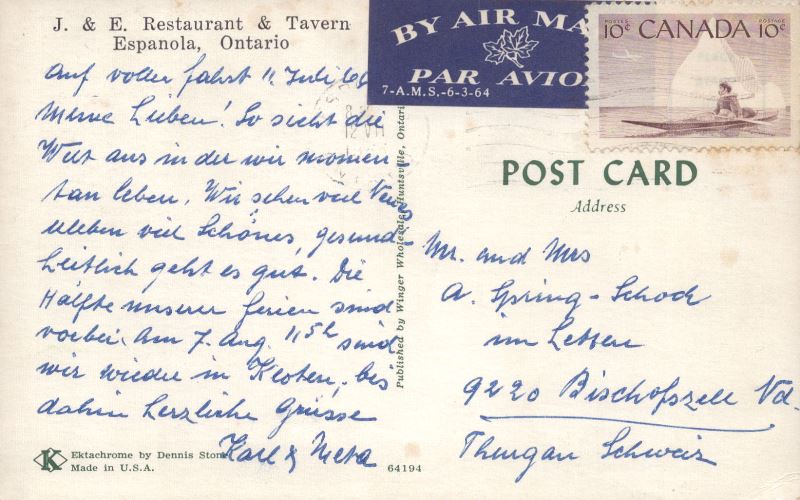 J. & E. Restaurant & Tavern
Espanola, Ontario
Auf voller Fahrt 11. Juli 66
Meine Lieben! So sieht die
Welt aus in der wir momen-
tan leben. Wir sehen viel Neues
erleben viel Schönes, gesund-
heitlich geht es gut. Die
Hälfte unserer Ferien sind
vorbei. Am 7. Aug. 11.52 sind
wir wieder in Kloten, bis
dahin herzliche Grüsse
Karl & Meta
Ektachrome by Dennis Stone
Made in U.S.A.
64194
Published by Winger Wholesale, Huntsville, Ontario
BY AIR MA
PAR AVIO
7-A.M.S.-6-3-64
POSTES POSTAGE
10¢ CANADA 10¢
POST CARD
Address
Mr. and Mrs
A. Spring-Schoch
im Letten
9220 Bischofszell Nd.
Thurgau Schweiz